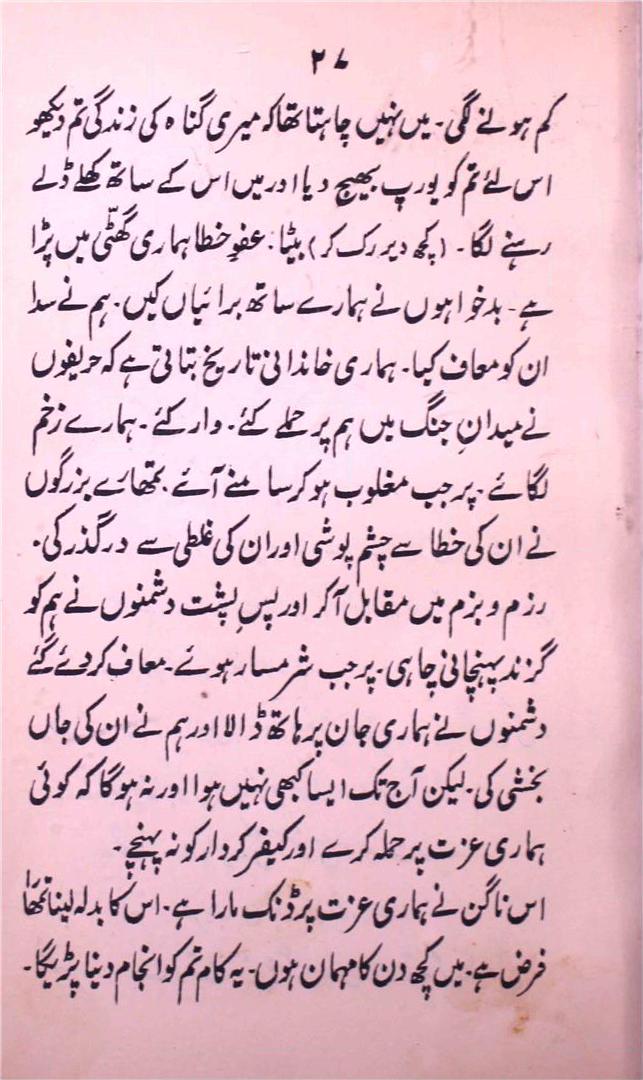 ۲۷
کم ہونے لگی۔ میں نہیں چاہتا تھا کہ میری گناہ کی زندگی تم دیکھو
اس لئے تم کو یورپ بھیج دیا اور میں اس کے ساتھ کھلے ڈلے
رہنے لگا۔ (کچھ دیر رک کر) بیٹا۔ عفوِ خطا ہماری گھٹّی میں پڑا
ہے۔ بدخواہوں نے ہمارے ساتھ برائیاں کیں۔ ہم نے سدا
ان کو معاف کیا۔ ہماری خاندانی تاریخ بتاتی ہے کہ حریفوں
نے میدانِ جنگ میں ہم پر حملے کئے۔ وار کئے۔ ہمارے زخم
لگائے۔ پر جب مغلوب ہو کر سامنے آئے۔ تمھارے بزرگوں
نے ان کی خطا سے چشم پوشی اور ان کی غلطی سے درگذر کی۔
رزم و بزم میں مقابل آکر اور پسِ پشت دشمنوں نے ہم کو
گزند پہنچانی چاہی۔ پر جب شرمسار ہوئے۔ معاف کر دئے گئے
دشمنوں نے ہماری جان پر ہاتھ ڈالا اور ہم نے ان کی جاں
بخشی کی۔ لیکن آج تک ایسا کبھی نہیں ہوا اور نہ ہوگا کہ کوئی
ہماری عزت پر حملہ کرے اور کیفر کردار کو نہ پہنچے۔
اس ناگن نے ہماری عزت پر ڈنک مارا ہے۔ اس کا بدلہ لینا تمھارا
فرض ہے۔ میں کچھ دن کا مہمان ہوں۔ یہ کام تم کو انجام دینا پڑیگا۔